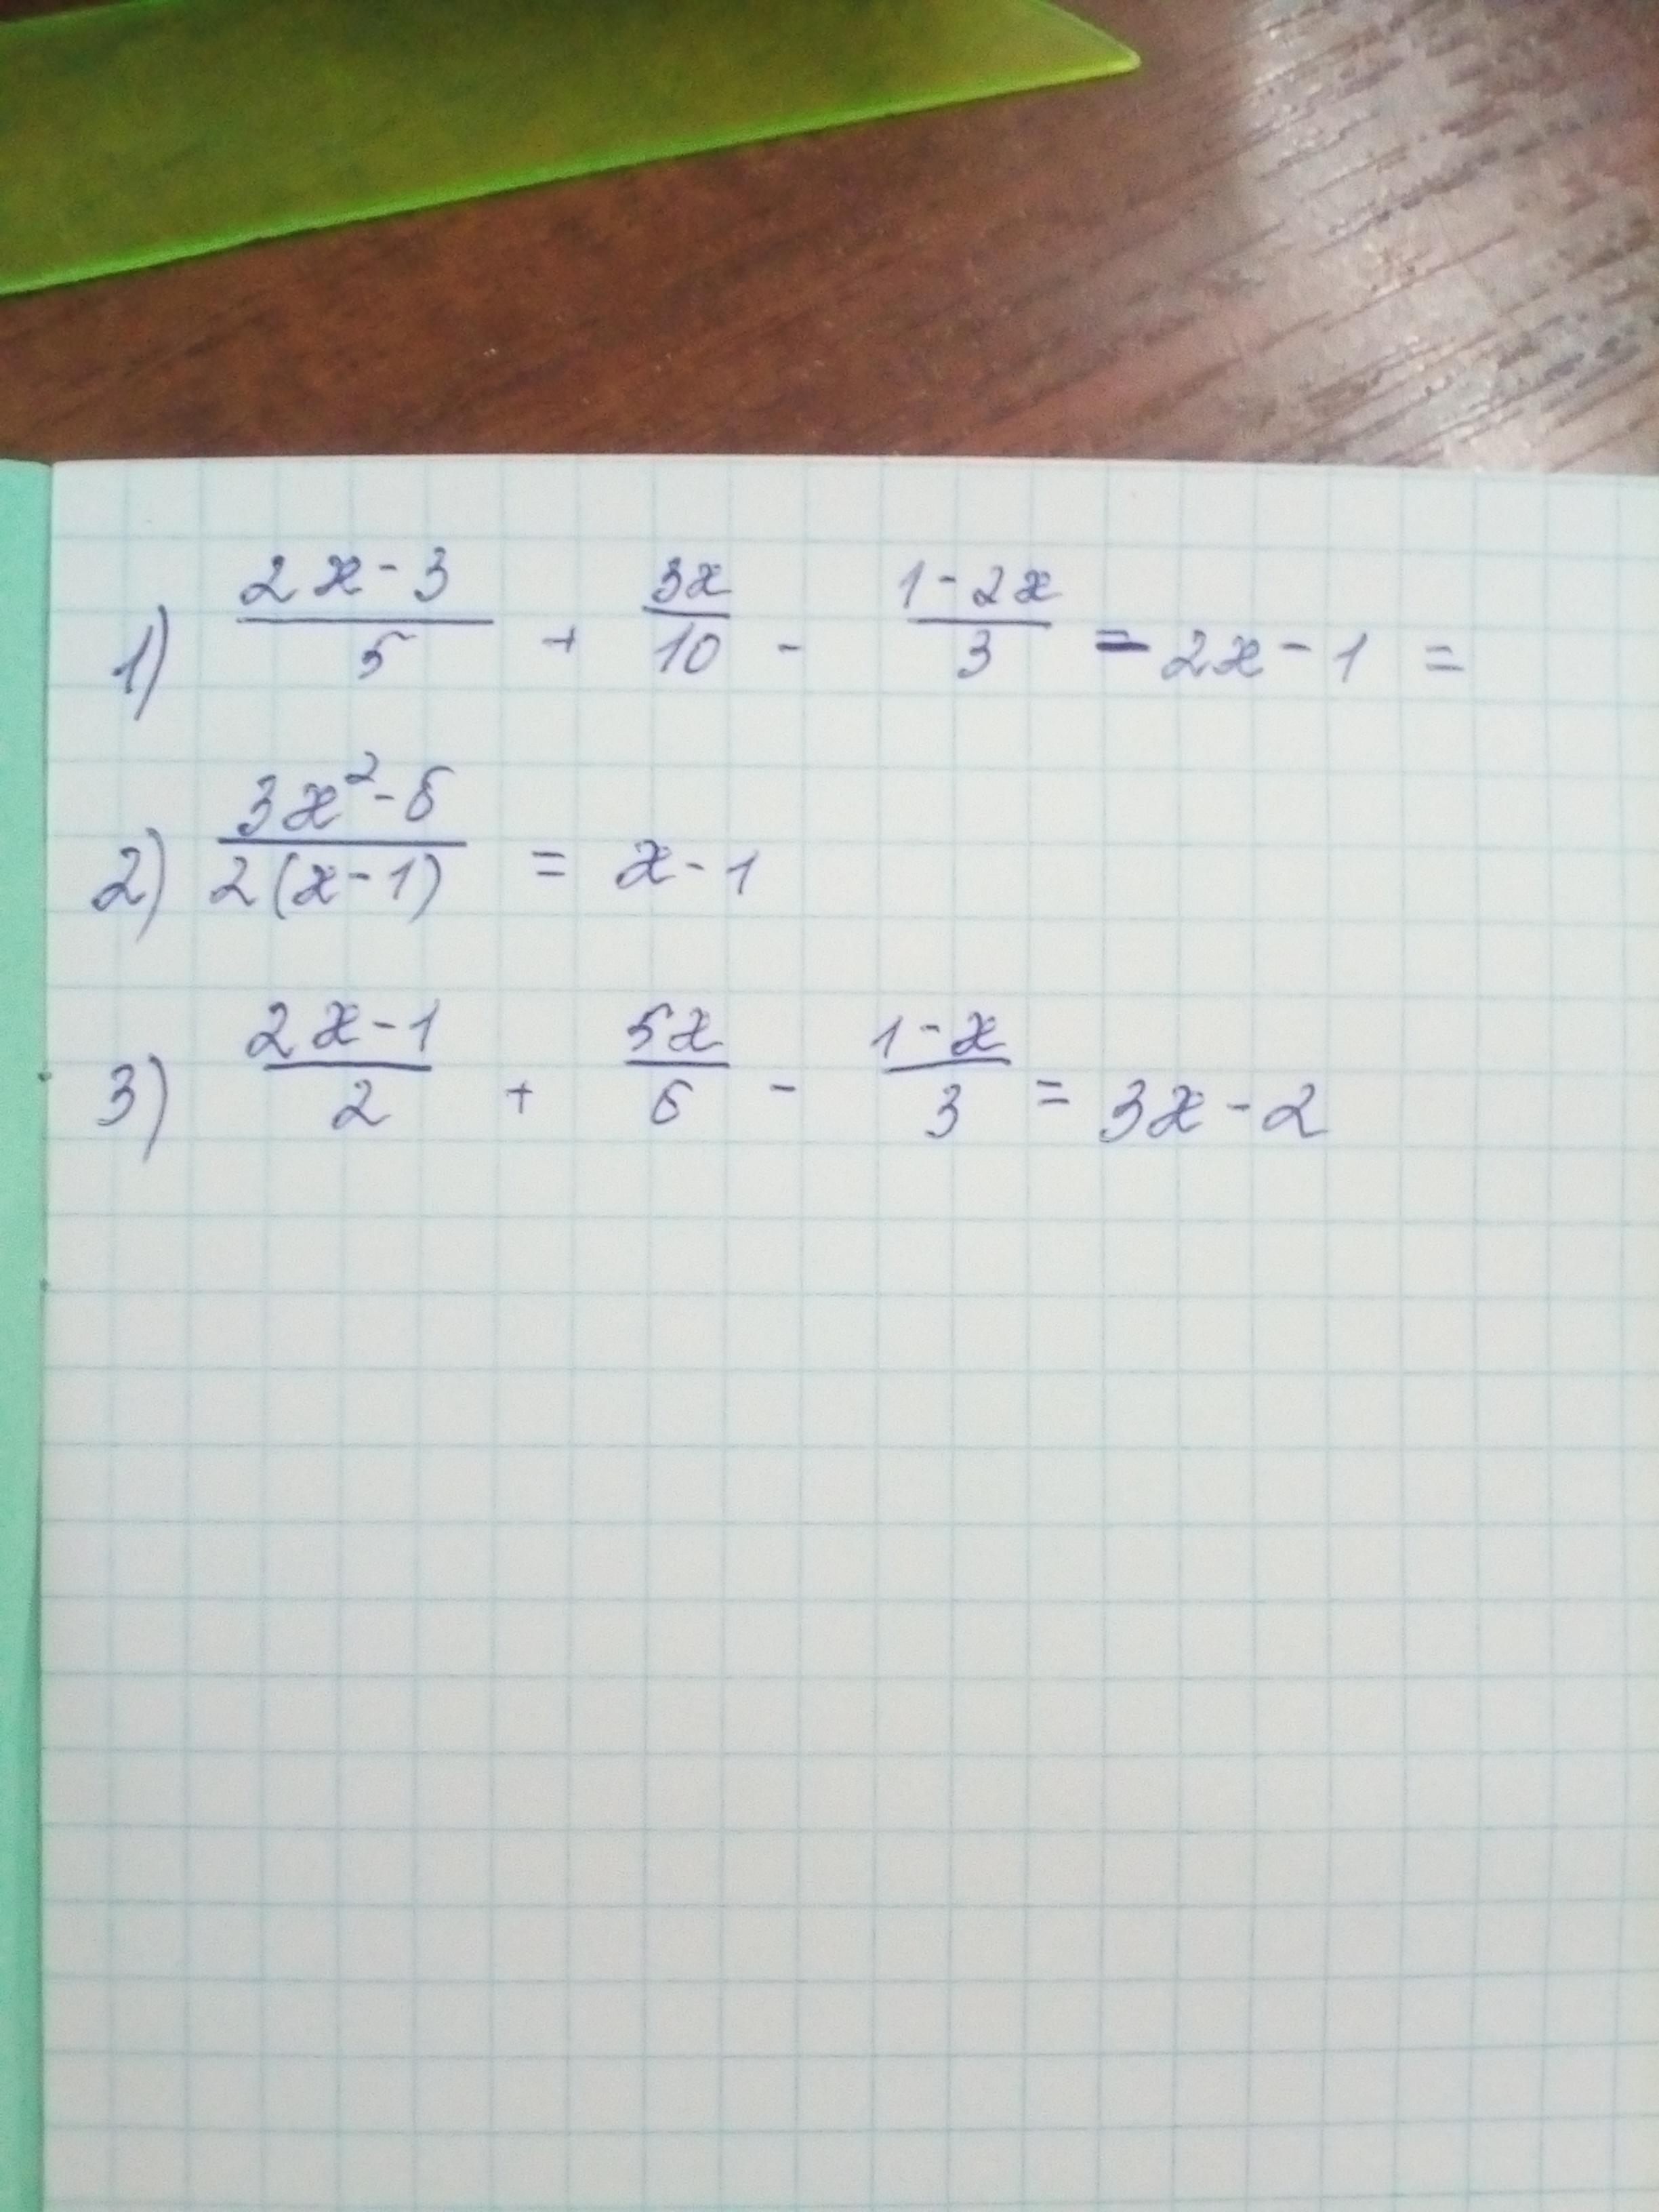 1) (2x-3)/5 + 3x/10 - (1-2x)/3 = 2x-1 =
2) (3x²-6)/(2(x-1)) = x-1
3) (2x-1)/2 + 5x/6 - (1-x)/3 = 3x-2